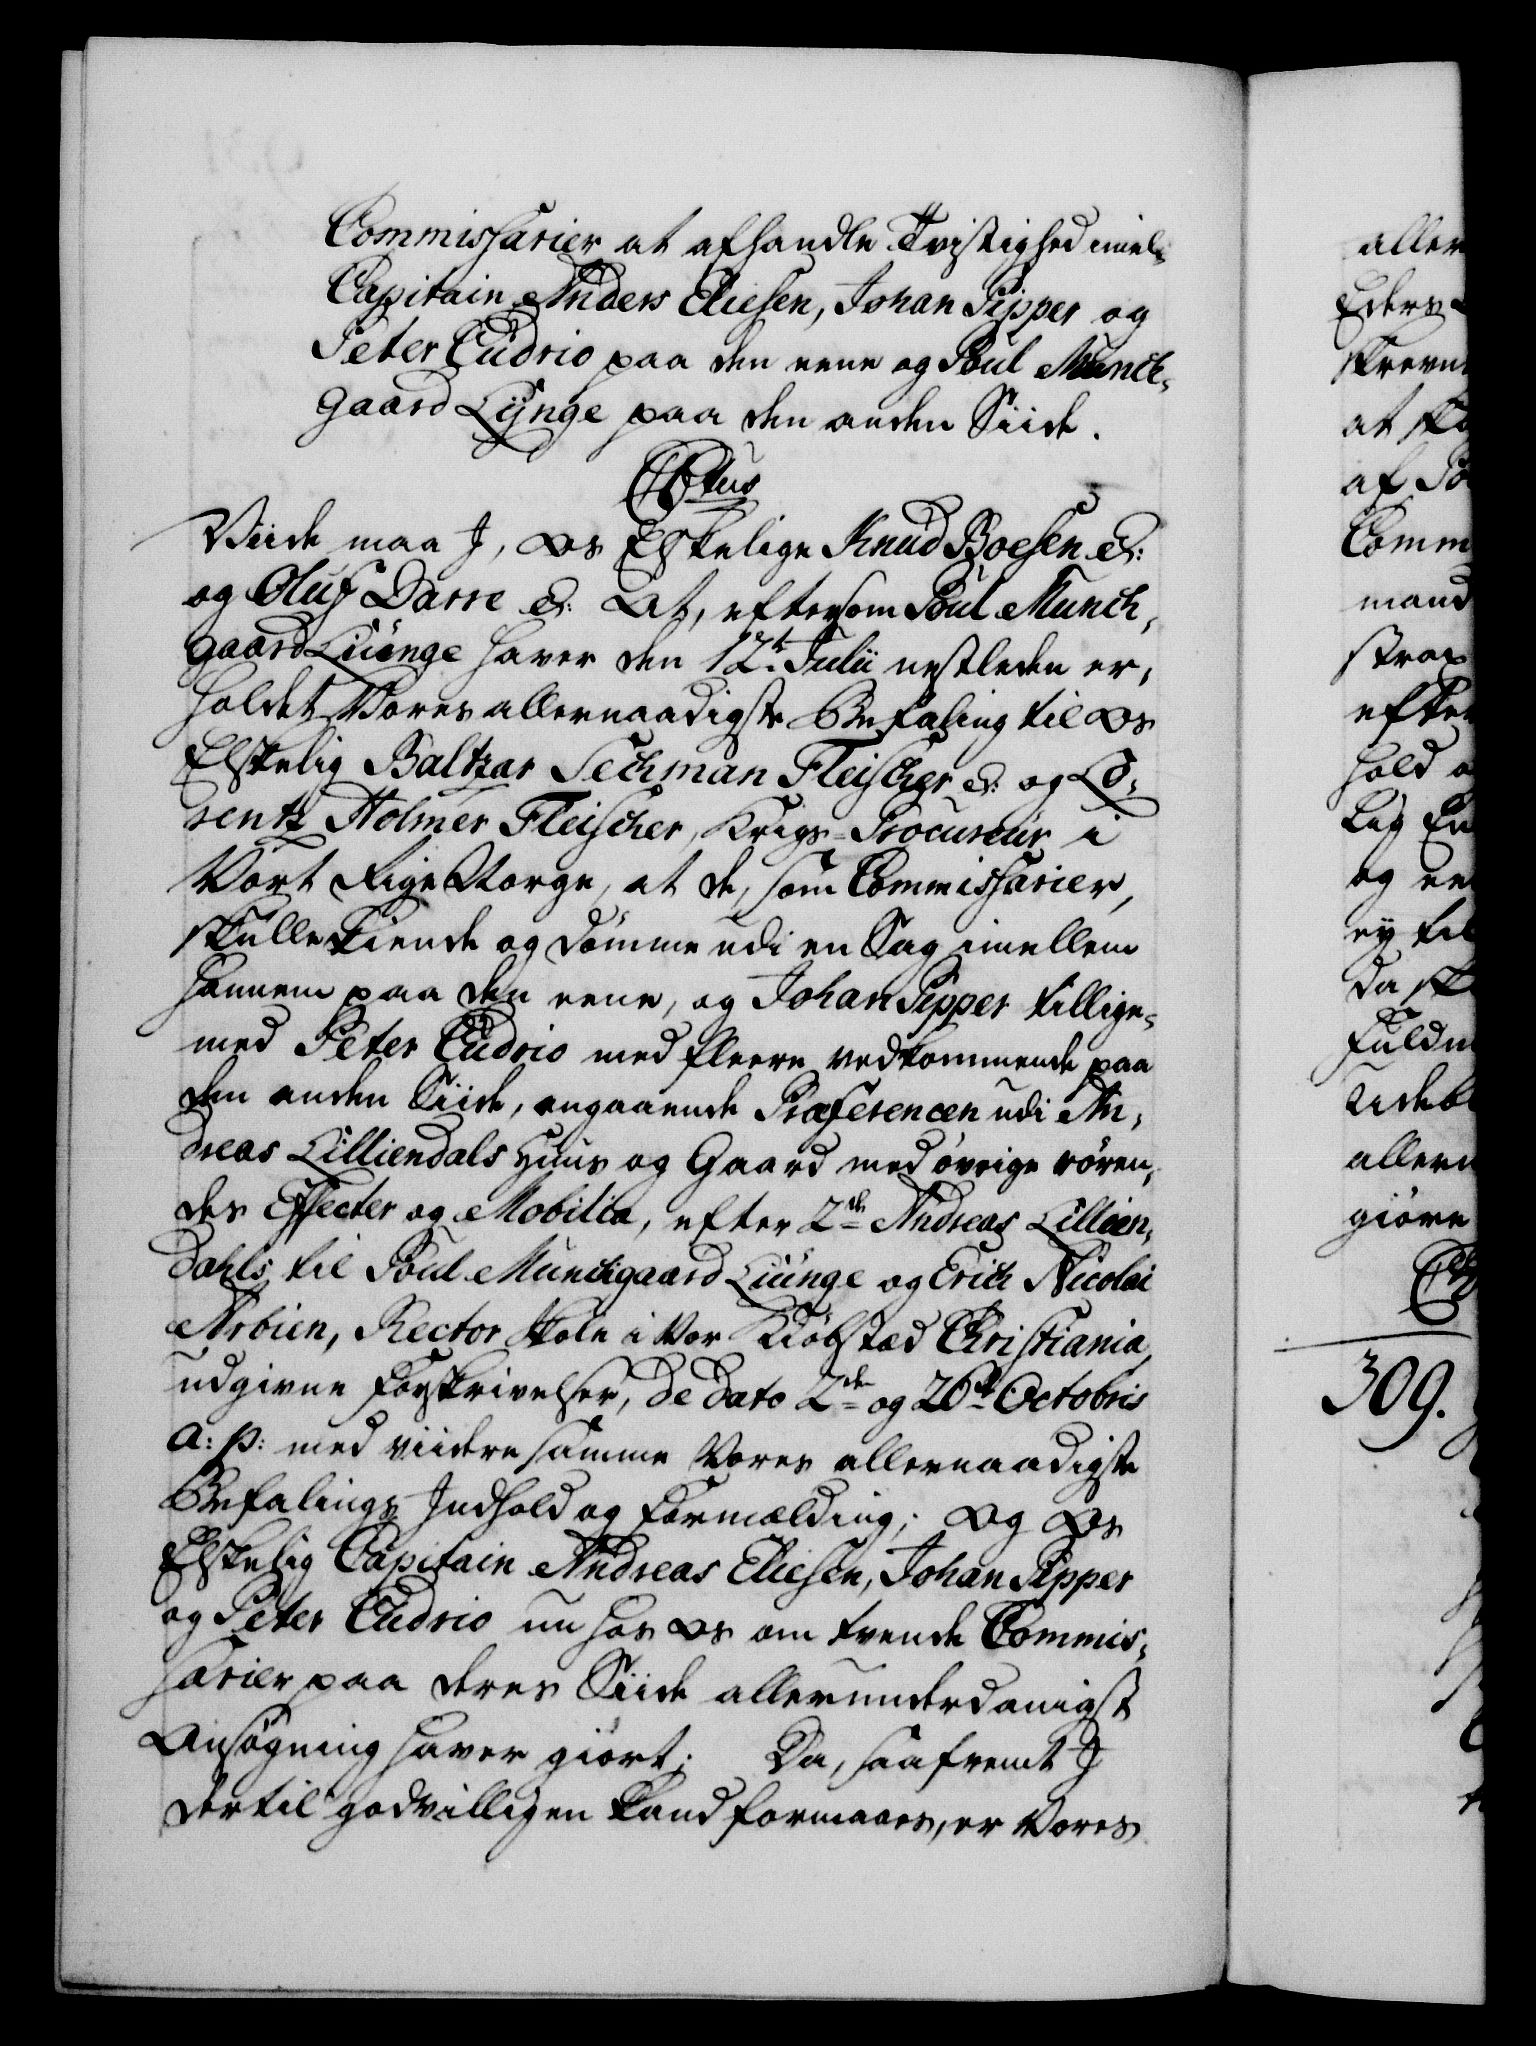 Commissarier at afhandle Tvistighed imel:
Capitain Anders Eliesen, Johan Pipper og
Peter Cudrio paa den eene og Poul Munch,
gaard Lÿnge paa den anden Siide.
C6tus
Viide maa I, Os Elskelige Knud Boesen &:
og Oluf Darre &: At, eftersom Poul Munch,
gaard Liunge haver den 12te Julii nestleden er,
holdet Vores allernaadigste Befaling til Os
Elskelig Baltzar Sechman Fleischer &: og Lo,
rentz Holmer Fleischer, Krigs-Procureur i
Vort Rige Norge, at de, som Commissarier,
skulle kiende og dömme udi en Sag imellem
hannem paa den eene, og Johan Pipper tillige-
med Peter Cudrio med fleere vedkommende paa
den anden Siide, angaaende Præferencen udi An,
dreas Lilliendals Huus og Gaard med övrige rören,
des Effecter og Mobilia, efter 2de Andreas Lillien,
dahls til Poul Munchgaard Liunge og Erich Nicolai
Arbien, Rector Skole i Vor Kiöbsted Christiania,
udgivne Forskrivelser, de dato 2de og 26de Octobris
a: p: med viidere samme Vores allernaadigste
Befalings Indhold og Formelding; Og Os
Elskelig Capitain Andreas Eliesen, Johan Pipper
og Peter Cudrio nu hos Os om tvende Commis,
sarier paa deres Siide allerunderdanigst
Ansögning haver giort; Da, saafremt I
dertil godvilligen kand formaaes, er Vores
aller
Eders
skrevne
at ska
af Po
Comm
mand
strax
efter
hold o
lig En
og ee
ey til
Da sk
Fuldm
udebl
allern
giöre
309.